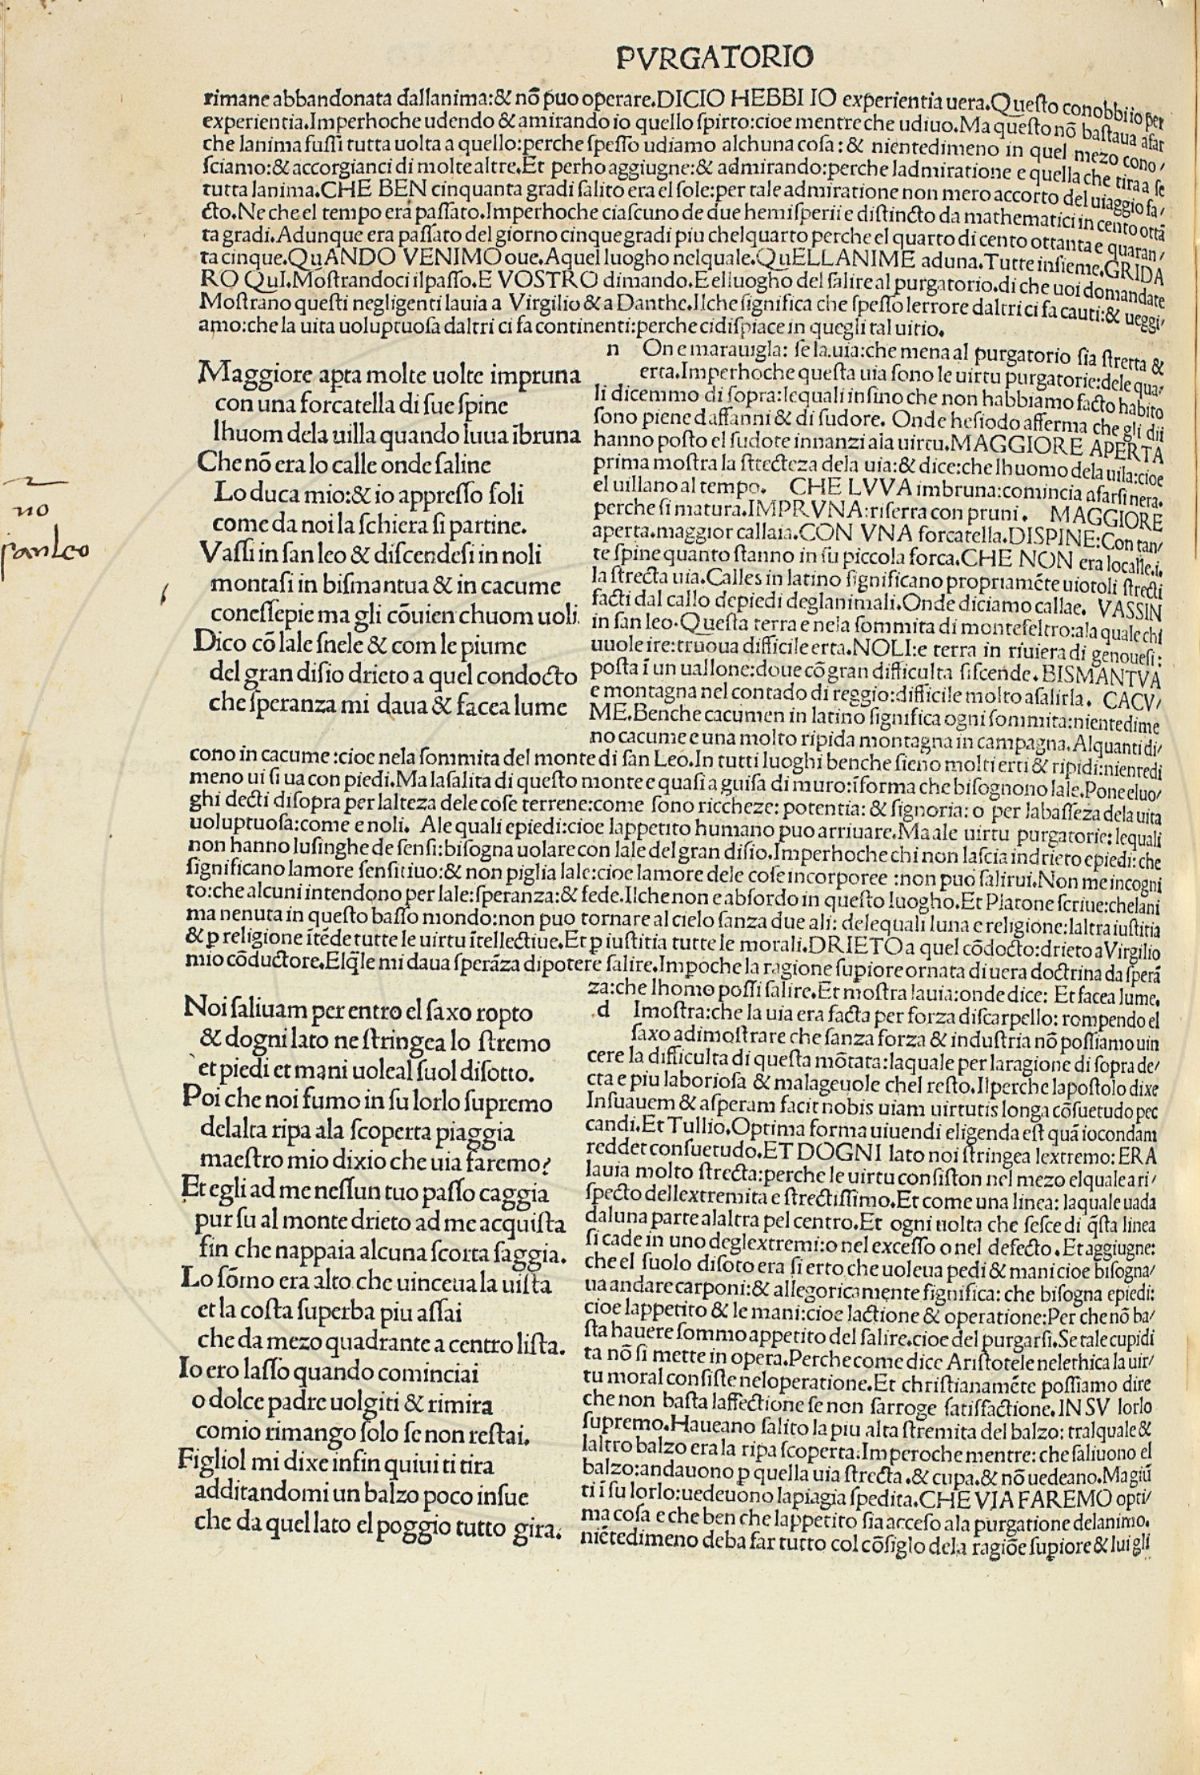 PVRGATORIO
rimane abbandonata dallanima:& nõ puo operare.DICIO HEBBI IO experientia uera.Questo conobbi io per
experientia.Imperhoche udendo & amirando io quello spirto:cioe mentre che udiuo.Ma questo nõ bastaua afar
che lanima fussi tutta uolta a quello:perche spesso udiamo alchuna cosa:& nientedimeno in quel mezo cono/
sciamo:& accorgianci di molte altre.Et perho aggiugne:& admirando:perche ladmiratione e quella che tira a se
tutta lanima.CHE BEN cinquanta gradi salito era el sole:per tale admiratione non mero accorto del uiaggio fa/
cto.Ne che el tempo era passato.Imperhoche ciascuno de due hemisperii e distincto da mathematici in cento ottã
ta gradi.Adunque era passato del giorno cinque gradi piu chelquarto perche el quarto di cento ottanta e quaran/
ta cinque.QuANDO VENIMO oue.Aquel luogho nelquale.QuELLANIME aduna.Tutte insieme.GRIDA
RO QuI.Mostrandoci il passo.E VOSTRO dimando.E elluogho del salire al purgatorio.di che uoi domandate
Mostrano questi negligenti lauia a Virgilio & a Danthe.Ilche significa che spesso lerrore daltri ci fa cauti:& ueggi/
amo:che la uita uoluptuosa daltri ci fa continenti:perche cidispiace in quegli tal uitio.
Maggiore apta molte uolte impruna
con una forcatella di sue spine
lhuom dela uilla quando luua ĩbruna
Che nõ era lo calle onde saline
Lo duca mio:& io appresso soli
come da noi la schiera si partine.
Vassi in san leo & discendesi in noli
montasi in bismantua & in cacume
conessepie ma gli cõuien chuom uoli
Dico cõ lale snele & com le piume
del gran disio drieto a quel condocto
che speranza mi daua & facea lume
no
san Leo
n On e marauigla: se la.uia:che mena al purgatorio sia stretta &
erta.Imperhoche questa uia sono le uirtu purgatorie:dele qua/
li dicemmo di sopra:lequali insino che non habbiamo facto habito
sono piene daffanni & di sudore. Onde hesiodo afferma che gli dii
hanno posto el sudore innanzi ala uirtu.MAGGIORE APERTA
prima mostra la strecteza dela uia:& dice:che lhuomo dela uila:cioe
el uillano al tempo. CHE LVVA imbruna:comincia afarsi nera.
perche si matura.IMPRVNA:riserra con pruni. MAGGIORE
aperta.maggior callaia.CON VNA forcatella.DISPINE:Con tan/
te spine quanto stanno in su piccola forca.CHE NON era localle.i.
la strecta uia.Calles in latino significano propriamẽte uiotoli strecti
facti dal callo depiedi deglanimali.Onde diciamo callae. VASSIN
in san leo.Questa terra e nela sommita di montefeltro:ala quale chi
uuole ire:truoua difficile erta.NOLI:e terra in riuiera di genouesi:
posta ĩ un uallone:doue cõ gran difficulta siscende.BISMANTVA
e montagna nel contado di reggio:difficile molto asalirla. CACV/
ME.Benche cacumen in latino significa ogni sommita:nientedime
no cacume e una molto ripida montagna in campagna.Alquanti di/
cono in cacume:cioe nela sommita del monte di san Leo.In tutti luoghi benche sieno molti erti & ripidi:nientedi
meno ui si ua con piedi.Ma lasalita di questo monte e quasi a guisa di muro:ĩforma che bisognono lale.Pone eluo/
ghi decti disopra per lalteza dele cose terrene:come sono riccheze: potentia: & signoria: o per labasseza dela uita
uoluptuosa:come e noli. Ale quali epiedi:cioe lappetito humano puo arriuare.Ma ale uirtu purgatorie: lequali
non hanno lusinghe de sensi:bisogna uolare con lale del gran disio.Imperhoche chi non lascia indrieto epiedi:che
significano lamore sensitiuo:& non piglia lale:cioe lamore dele cose incorporee :non puo salirui.Non me incogni
to:che alcuni intendono per lale:speranza:& fede.Ilche non e absordo in questo luogho.Et Platone scriue:chelani
ma nenuta in questo basso mondo:non puo tornare al cielo sanza due ali: delequali luna e religione:laltra iustitia
& p religione ĩtẽde tutte le uirtu ĩtellectiue.Et p iustitia tutte le morali.DRIETO a quel cõdocto:drieto a Virgilio
mio cõductore.Elq̃le mi daua sperãza dipotere salire.Impoche la ragione supiore ornata di uera doctrina da sperã
za:che lhomo possi salire.Et mostra lauia:onde dice: Et facea lume.
Noi saliuam per entro el saxo ropto
& dogni lato ne stringea lo stremo
et piedi et mani uoleal suol disotto.
Poi che noi fumo in su lorlo supremo
delalta ripa ala scoperta piaggia
maestro mio dixio che uia faremo?
Et egli ad me nessun tuo passo caggia
pur su al monte drieto ad me acquista
fin che nappaia alcuna scorta saggia.
Lo sõmo era alto che uinceua la uista
et la costa superba piu assai
che da mezo quadrante a centro lista.
Io ero lasso quando cominciai
o dolce padre uolgiti & rimira
comio rimango solo se non restai.
Figliol mi dixe infin quiui ti tira
additandomi un balzo poco insue
che da quel lato el poggio tutto gira.
.d Imostra:che la uia era facta per forza discarpello: rompendo el
saxo adimostrare che sanza forza & industria nõ possiamo uin
cere la difficulta di questa mõtata:laquale per laragione di sopra de/
cta e piu laboriosa & malageuole chel resto.Ilperche lapostolo dixe
Insuauem & asperam facit nobis uiam uirtutis longa cõsuetudo pec
candi.Et Tullio.Optima forma uiuendi eligenda est quã iocondam
reddet consuetudo.ET DOGNI lato noi stringea lextremo: ERA
lauia molto strecta:perche le uirtu consiston nel mezo elquale a ri/
specto dellextremita e strectissimo.Et come una linea: laquale uada
daluna parte alaltra pel centro.Et ogni uolta che sesce di q̃sta linea
si cade in uno deglextremi:o nel excesso o nel defecto.Et aggiugne:
che el suolo disoto era si erto che uoleua pedi & mani cioe bisogna/
ua andare carponi:& allegoricamente significa: che bisogna epiedi:
cioe lappetito & le mani:cioe lactione & operatione:Per che nõ ba/
sta hauere sommo appetito del salire.cioe del purgarsi.Se tale cupidi
ta nõ si mette in opera.Perche come dice Aristotele nelethica la uir/
tu moral consiste neloperatione.Et christianamẽte possiamo dire
che non basta laffectione se non sarroge satisfactione.IN SV lorlo
supremo.Haueano salito la piu alta stremita del balzo: tralquale &
laltro balzo era la ripa scoperta.Imperoche mentre: che saliuono el
balzo:andauono p quella uia strecta.& cupa.& nõ uedeano.Ma giũ
ti ĩ su lorlo:uedeuono la piagia spedita.CHE VIA FAREMO opti/
ma cosa e che ben che lappetito sia acceso ala purgatione delanimo.
niẽtedimeno deba far tutto col cõsiglo dela ragiõe supiore & lui gli